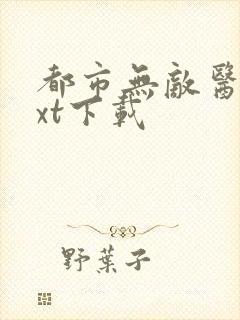 都市無敵醫
xt下載
野葉子